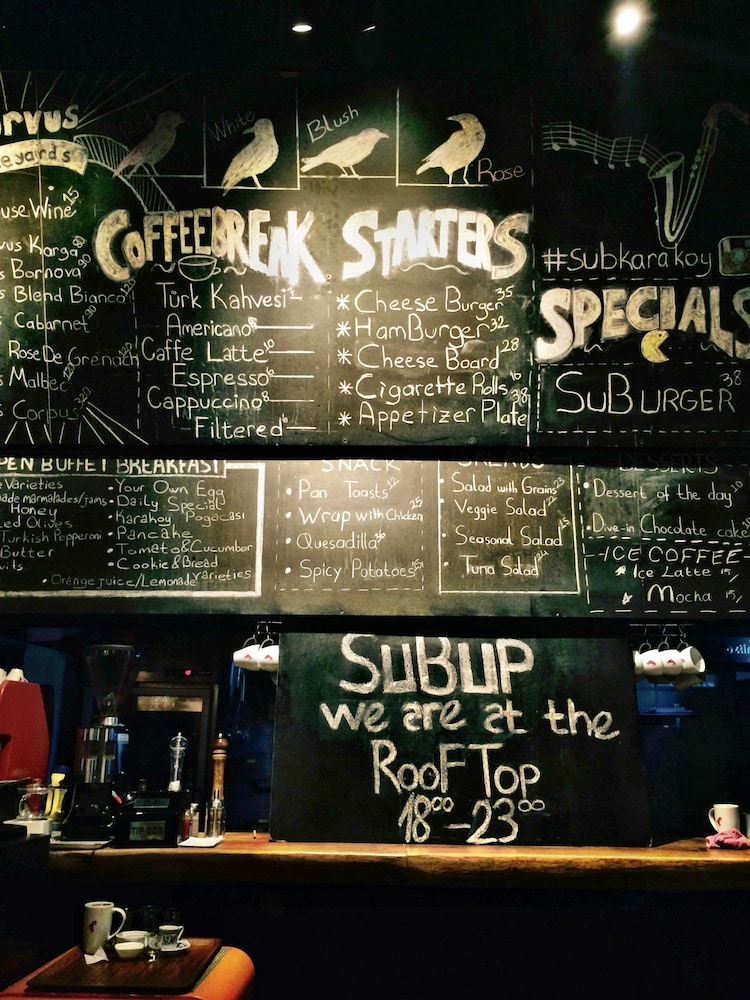 Red
White
Blush
Rose
CoffeeBreak
Türk Kahvesi
Americano 8
Caffe Latte 10
Espresso 6
Cappuccino 8
Filtered 6
Starters
* Cheese Burger 35
* HamBurger 32
* Cheese Board 28
* Cigarette Rolls 16
* Appetizer Plate 38
#subkarakoy
Specials
SuBurger 38
rvus
eyards
use Wine 15
vus Karga
s Bornova
s Blend Bianco
Cabarnet
Rose De Grenach
s Malbec
s Corpus
PEN BUFFET BREAKFAST
Varieties
ade marmalades/jams
Honey
ed Olives
Turkish Pepperoni
Butter
uits
• Your Own Egg
• Daily Special
• Karakoy Pogacasi
• Pancake
• Tomato&Cucumber
• Cookie&Bread varieties
• Orange juice/Lemonade
SNACK
• Pan Toasts 12
• Wrap with Chicken 25
• Quesadilla
• Spicy Potatoes 15
SALADS
• Salad with Grains 23
• Veggie Salad 22
• Seasonal Salad 15
• Tuna Salad 24
DESSERTS
• Dessert of the day 10
• Dive-in Chocolate cake
ICE COFFEE
* Ice Latte 15/
* Mocha 15/
SuBUP
we are at the
RooFTop
18⁰⁰-23⁰⁰
TIP BOX